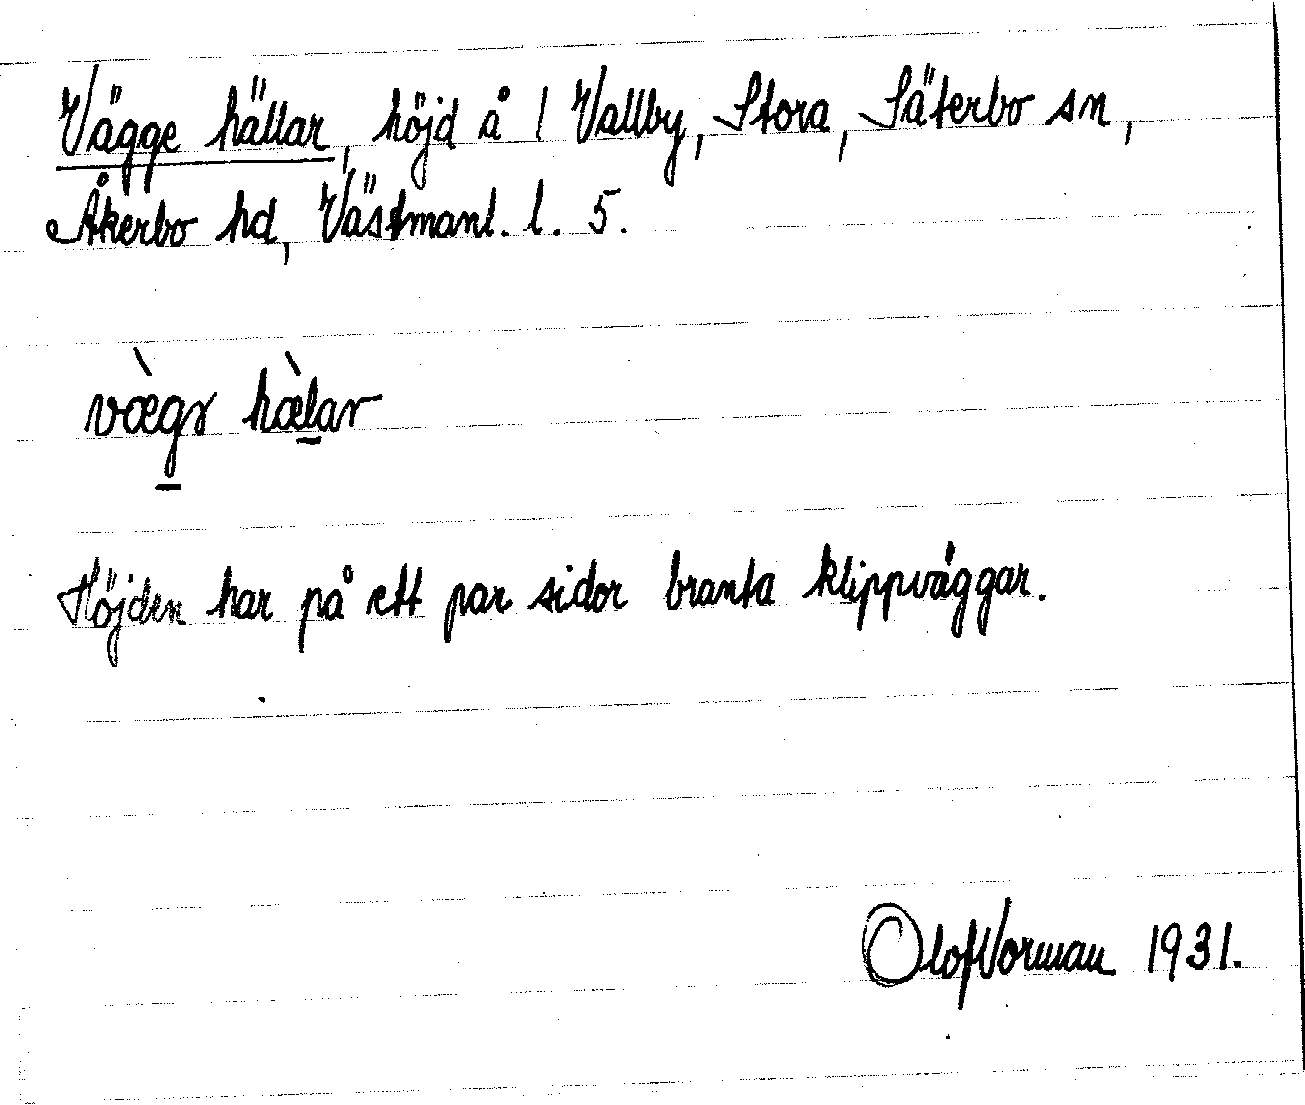 Vägge hällar, höjd å 1 Vallby, Stora, Säterbo sn,
Åkerbo hd, Västmanl. l. 5.
væ̀gɤ hæ̀l̲ar
Höjden har på ett par sidor branta klippväggar.
Olof Vorman 1931.